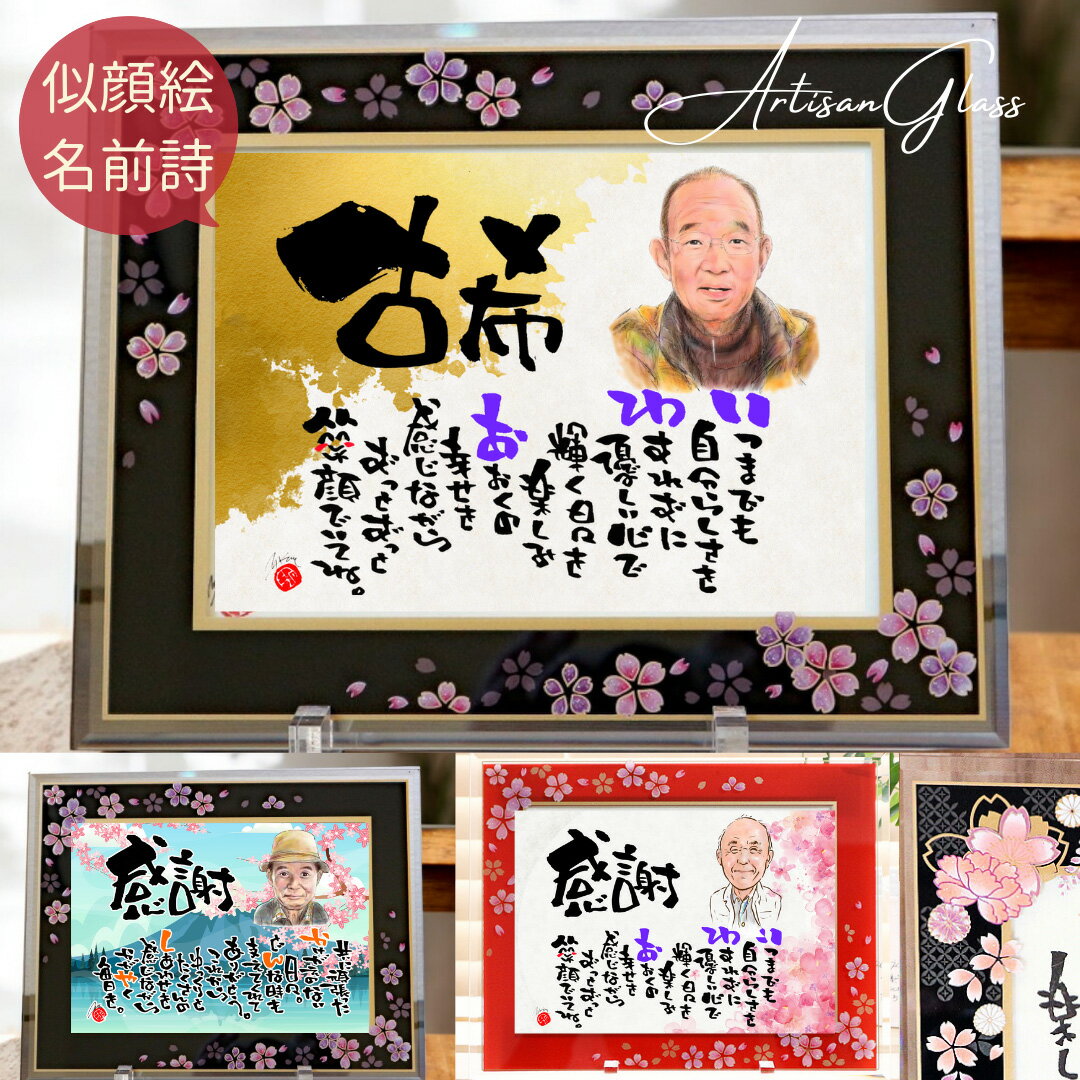 似顔絵
名前詩
ArtisanGlass
古希
いつまでも
自分らしさを
わすれずに
優しい心で
輝く日々を
楽しみ
おおくの
幸せを
感じながら
ずっとずっと
笑顔でいてね。
感謝
どんな時も
支えてくれて
ありがとう。
これから
ゆっくりと
たくさんの
しあわせを
感じながら
感謝
いつまでも
自分らしさを
わすれずに
優しい心で
輝く日々を
楽しみ
おおくの
幸せを
感じながら
ずっとずっと
笑顔でいてね。
楽し